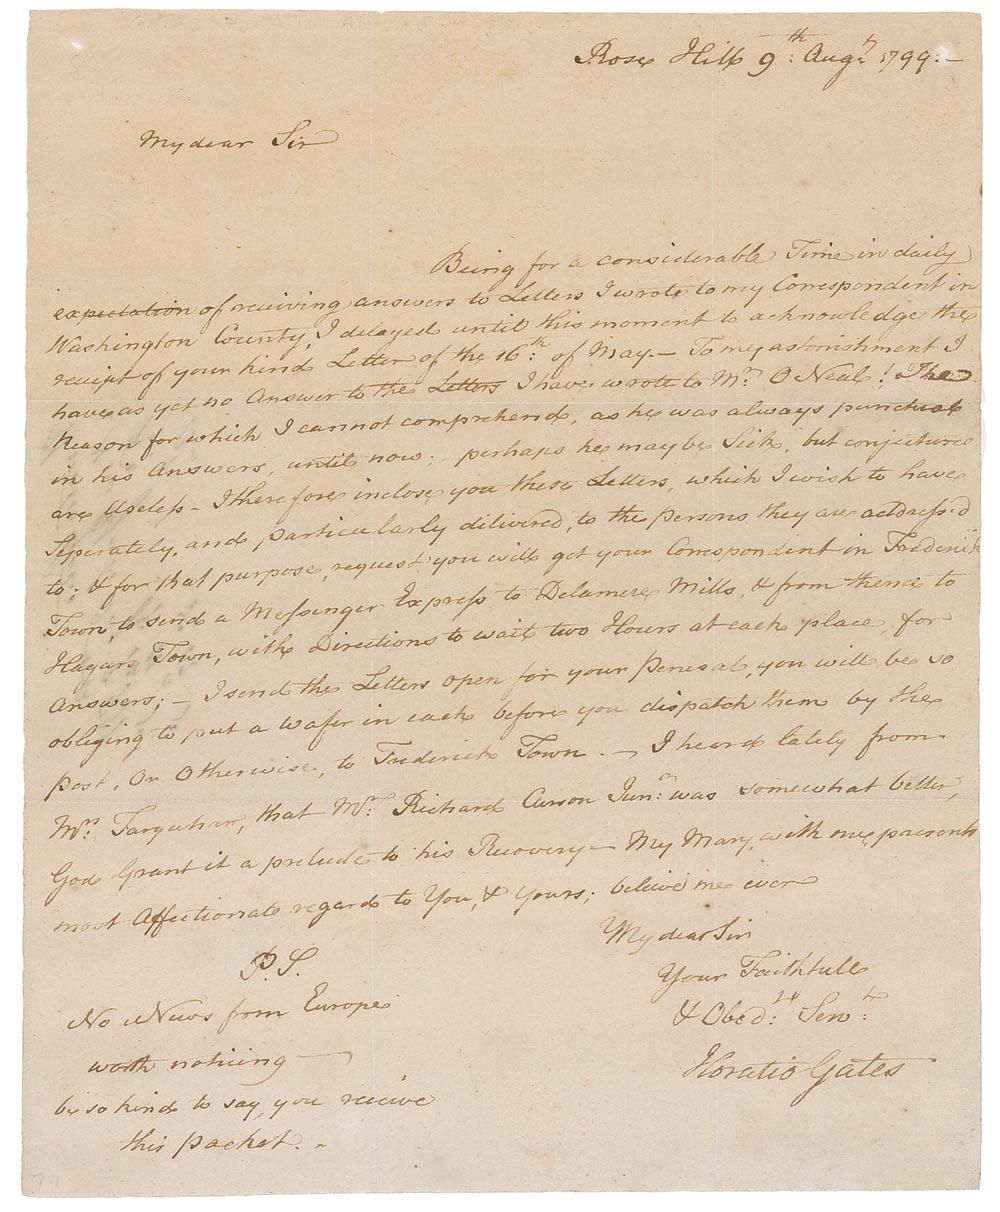 Rose Hill 9:th Augt: 1799:—
My dear Sir
Being for a considerable Time in daily
expectation of receiving answers to Letters I wrote to my Correspondent in
Washington County, I delayed until this moment to acknowledge the
receipt of your kind Letter of the 16:th of May.— To my astonishment I
have as yet no Answer to the Letters I have wrote to Mr. O Neal! The
Reason for which I cannot comprehend, as he was always punctual
in his Answers, until now; - perhaps he may be Sick, but conjectures
are Useless - I therefore inclose you these Letters, which I wish to have
Seperately, and particularly delivered, to the persons they are address'd
to; & for that purpose, request you will get your Correspondent in Frederick
Town, to send a Messenger Express to Delamere Mills, & from thence to
Hagars Town, with Directions to wait two Hours at each place, for
Answers; — I send the Letters open for your perusal, you will be so
obliging to put a Wafer in each before you dispatch them by the
post, or Otherwise, to Frederick Town. — I heard lately from
Mrs Farquhar, that Mr: Richard Curson Junr: was somewhat better,
God Grant it a prelude to his Recovery — My Mary, with me, presents
most Affectionate regards to You, & yours; believe me ever
My dear Sir
Your Faithfull
& Obed:nt Serv:t
Horatio Gates
P.S.
No News from Europe
worth noticing —
be so kind to say, you receive
this packet. -